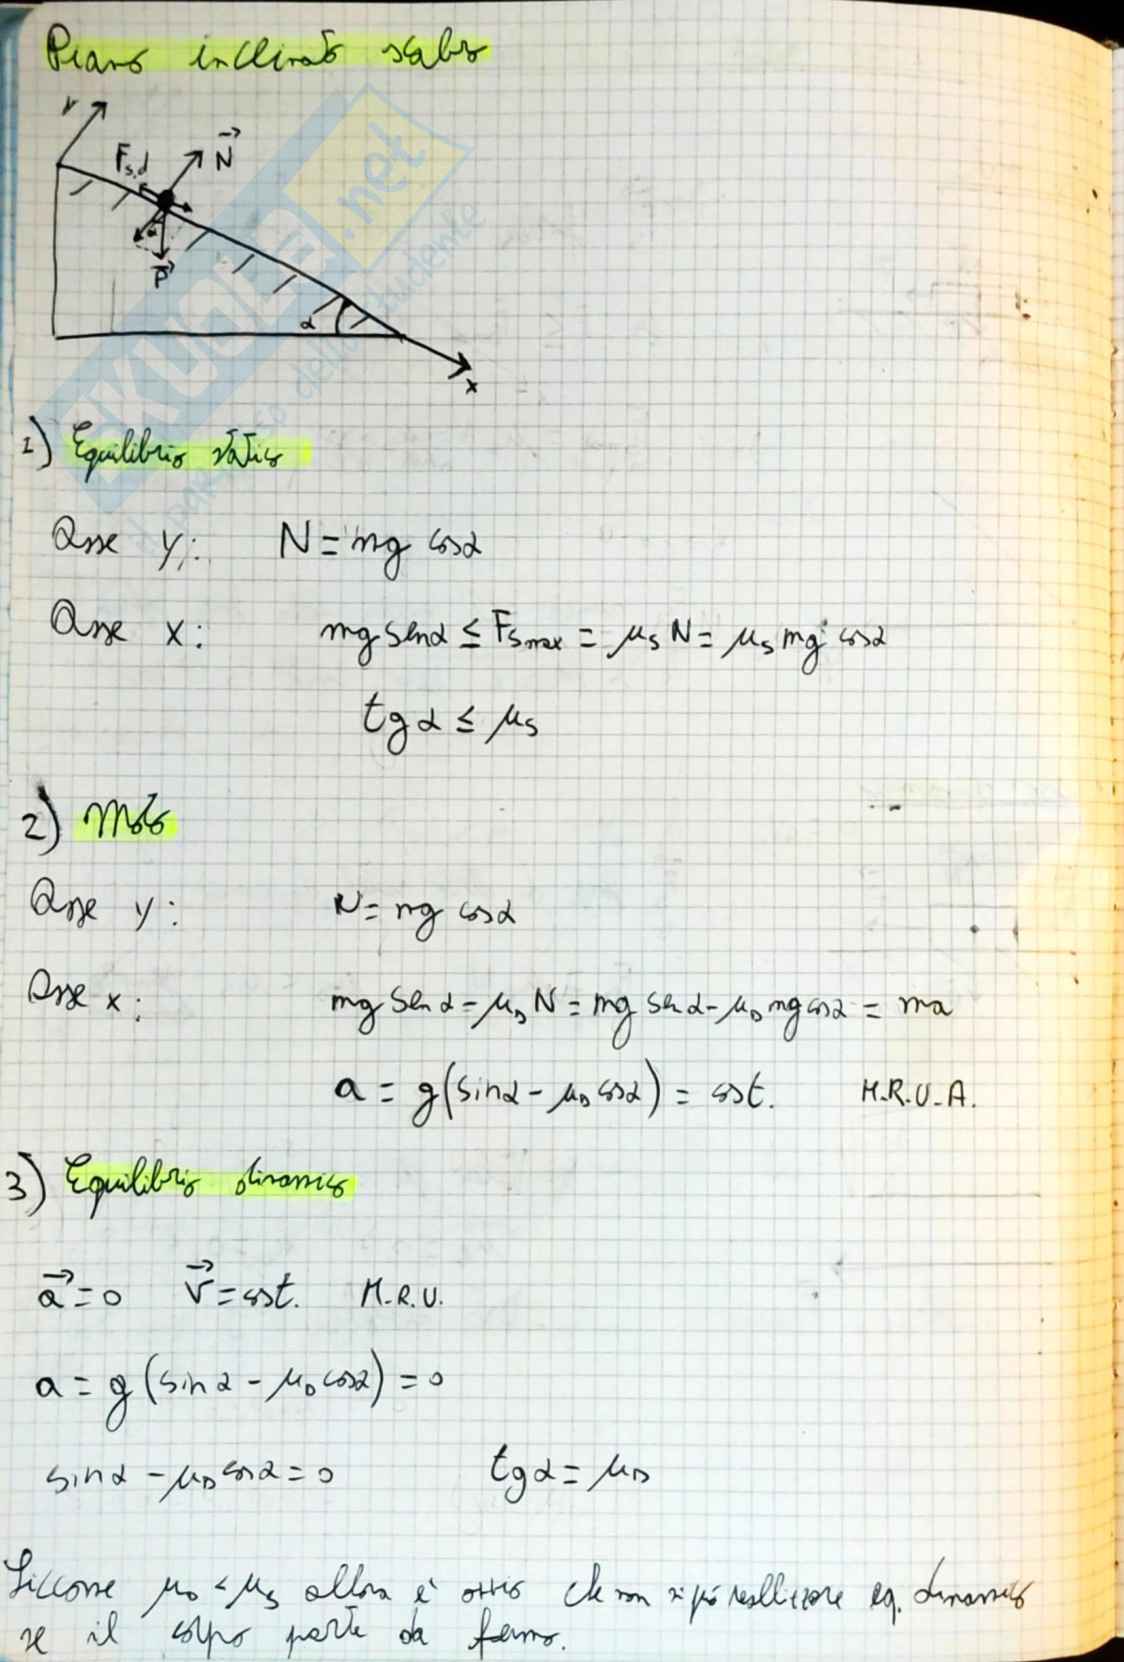 Piano inclinato scabro
y
F s,d
N
α
P
α
x
1) Equilibrio statico
Asse y: N = mg cosα
Asse x: mg senα ≤ Fsmax = μs N = μs mg cosα
tgα ≤ μs
2) Moto
Asse y: N = mg cosα
Asse x: mg senα - μD N = mg senα - μD mg cosα = ma
a = g(sinα - μD cosα) = cost. M.R.U.A.
3) Equilibrio dinamico
a = 0 v = cost. M.R.U.
a = g(sinα - μD cosα) = 0
sinα - μD cosα = 0 tgα = μD
Siccome μD < μs allora è ovvio che non si può realizzare eq. dinamico
se il corpo parte da fermo.
SKUOLA.net
il paradiso dello studente